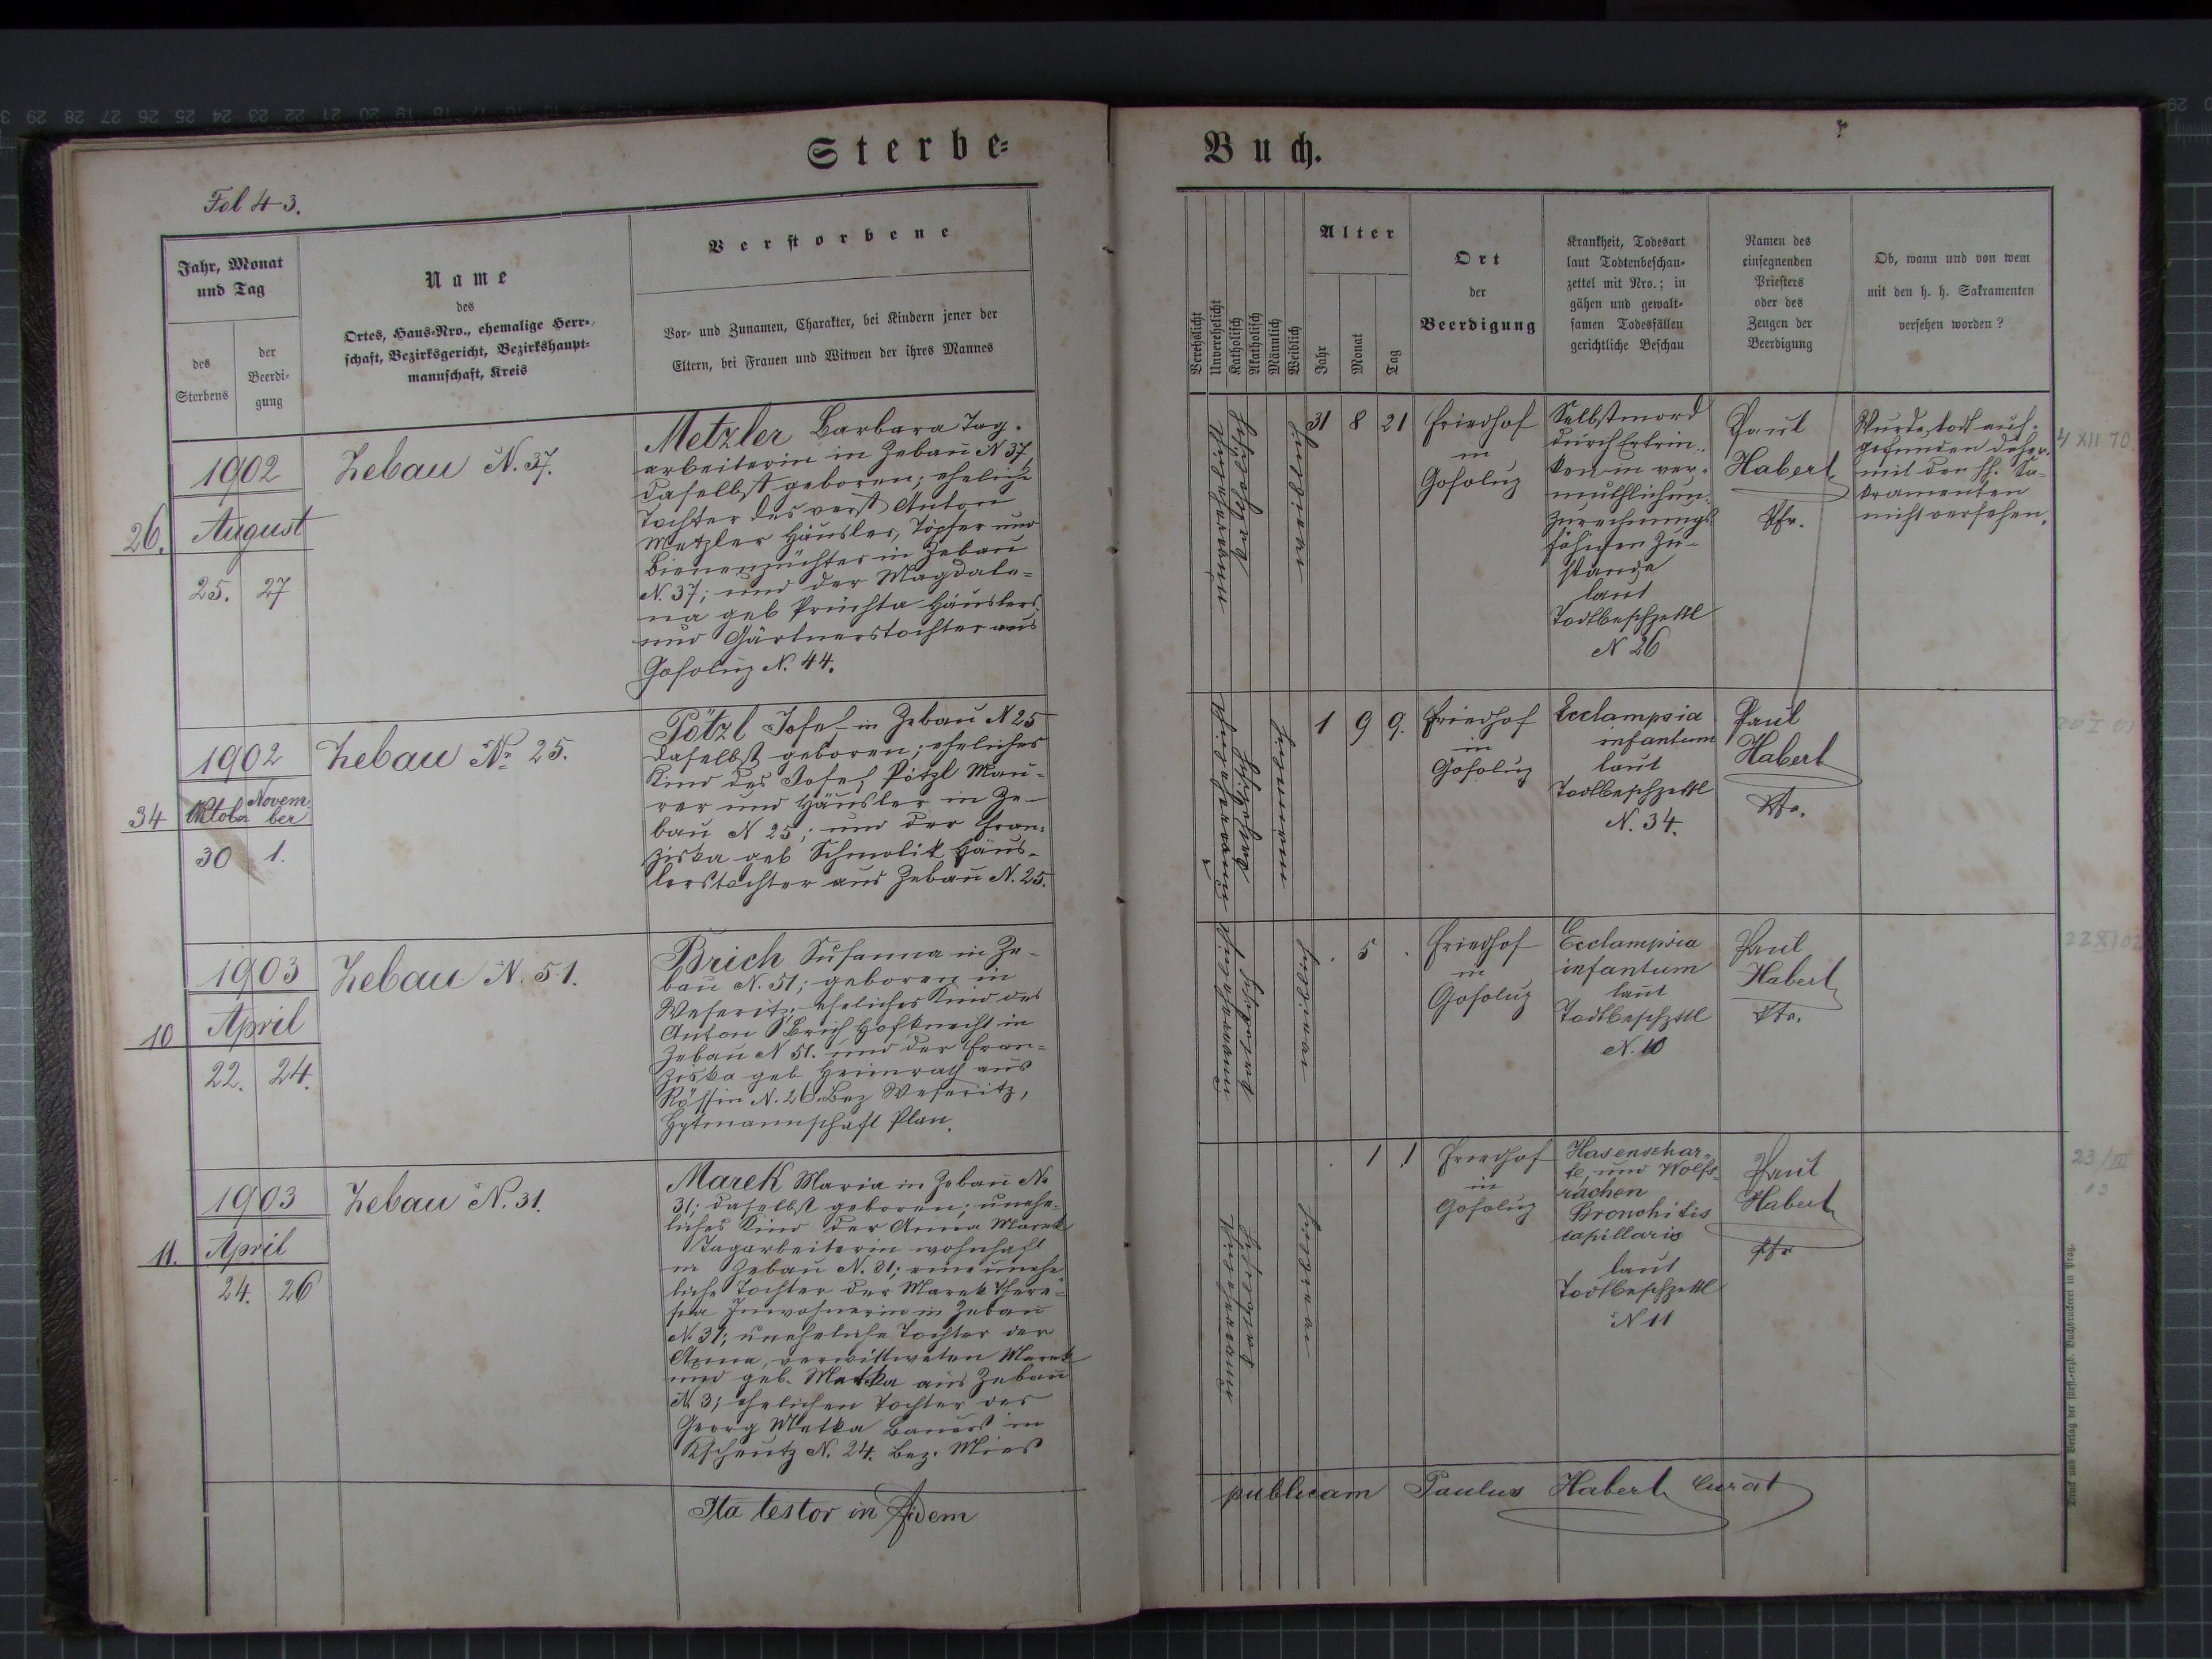 Sterbe-
Buch.
Fol 43.
Jahr, Monat
und Tag
des
Sterbens
der
Beerdi-
gung
Name
des
Ortes, Haus-Nro., ehemalige Herr-
schaft, Bezirksgericht, Bezirkshaupt-
mannschaft, Kreis
Verstorbene
Vor- und Zunamen, Charakter, bei Kindern jener der
Eltern, bei Frauen und Witwen der ihres Mannes
Verehelicht
Unverehelicht
Katholisch
Akatholisch
Männlich
Weiblich
Alter
Jahr
Monat
Tag
Ort
der
Beerdigung
Krankheit, Todesart
laut Todtenbeschau-
zettel mit Nro.; in
gähen und gewalt-
samen Todesfällen
gerichtliche Beschau
Namen des
einsegnenden
Priesters
oder des
Zeugen der
Beerdigung
Ob, wann und von wem
mit den h. h. Sakramenten
versehen worden?
26.
1902
August
25. 27
Zebau N. 37.
Metzler Barbara Tag-
arbeiterin in Zebau N 37,
daselbst geboren; eheliche
Tochter des verst Anton
Metzler Häusler, Töpfer und
Bienenzüchter in Zebau
N. 37; und der Magdale-
na geb Pruchta Häuslers
und Gärtnerstochter aus
Gosolup N. 44.
31 8 21
Friedhof
in
Gosolup
Selbstmord
durch Ertrin-
ken in ver-
muthlich un-
zurechnungs-
fähigen Zu-
stande
laut
Todtbeschzettl
N 26
Paul
Habert
Pfr.
Wurde todt auf-
gefunden daher
mit den hh. Sa-
kramenten
nicht versehen.
4 XII 70
34
1902
Oktober Novem
ber
30 1.
Zebau No 25.
Pötzl Josef in Zebau N 25
daselbst geboren; eheliches
Kind des Josef Pötzl Mau-
rer und Häusler in Ze-
bau N 25; und der Fran-
ziska geb Schmolik Häus-
lerstochter aus Zebau N. 25.
1 9 9.
Friedhof
in
Gosolup
Ecclampsia
infantum
laut
Todtbeschzettl
N. 34.
Paul
Habert
Pfr.
10
1903
April
22. 24.
Zebau N. 51.
Brich Susanna in Ze-
bau N. 51; geboren in
Weseritz; eheliches Kind des
Anton Brich Hofknecht in
Zebau N 51. und der Fran-
ziska geb Heinrath aus
Bez Weseritz,
Hptmannschaft Plan.
. 5 .
Friedhof
in
Gosolup
Ecclampsia
infantum
laut
Todtbeschzttl
N. 10
Paul
Habert
Pfr.
11.
1903
April
24. 26
Zebau N. 31.
Marek Maria in Zebau No
31; daselbst geboren; unehe-
liches Kind der Anna Marek
Tagarbeiterin wohnhaft
in Zebau N. 31; eine unehe
liche Tochter der Marek There-
sia Inwohnerin in Zebau
N. 31; uneheliche Tochter der
Anna, verwittweten Marek
und geb. Matka aus Zebau
N. 3; ehelichen Tochter des
Georg Matka Bauers in
Kscheutz N. 24. Bez. Mies
. 1 1
Friedhof
in
Gosolup
Hasenschar-
te und Wolfs-
rachen
Bronchitis
capillaris
laut
Todtbeschzettl
N 11
Paul
Habert
Pfr
23/III
03
Ita testor in fidem
publicam Paulus Habert Curat
Druck und Verlag der fürst.-erzb. Buchdruckerei in Prag.